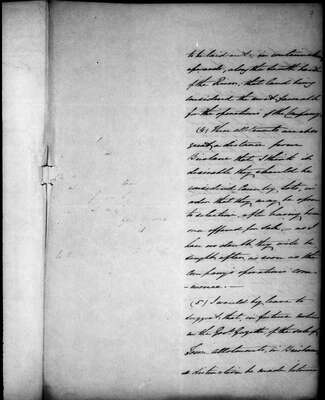 to be laid out, in continuation
upwards, along the South bank
of the River, that land being
considered the most favorable
for the operations of the Company.
(4) These allotments are also
greatly a distance from
Brisbane that I think it
desirable they should be
considered Country lots, in
order that they may be open
to selection, after having been
once offered for sale, as I
have no doubt they will be
sought after, as soon as the
Company's operations com-
mence.
(5) I would beg leave to
suggest that, in future notices
in the Govt Gazette of the sale of
Town allotments, in Brisbane,
a distinction be made between